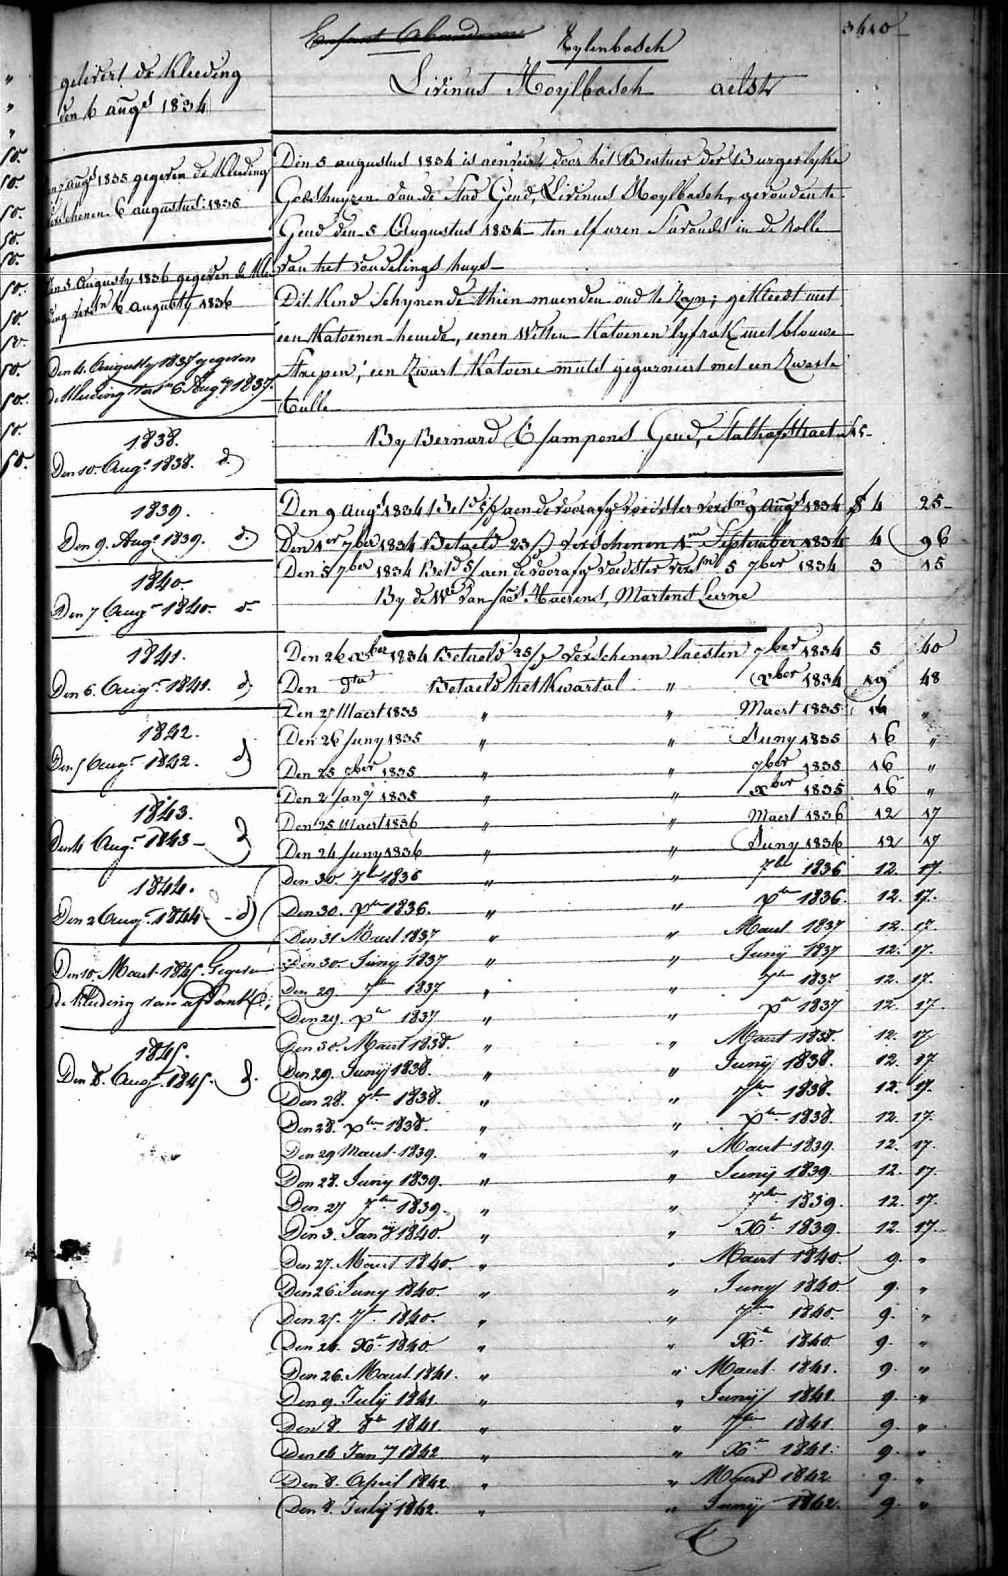 3410
Enfant Abandonné
Eylenbosch
Livinus Hoylbosch aelst
gelivert de Kleeding
den 6 augs 1834
augs 1835 gegeven de Kleeding
verschenen 6 augustus 1835
den 5 Augusty 1836 gegeven de Klee
ding versn 6 augusty 1836
Den 4 Augusty 1837 gegeven
de Kleeding versn 6 Augy 1837
1838.
Den 10 Augs 1838. d°
1839.
Den 9. Augs 1839. d°
1840.
Den 7 Augs 1840. d°
1841.
Den 6. Augs 1841. d°
1842.
Den 5 Augs 1842. d°
1843.
Den 4 Augs 1843 - d°
1844.
Den 2 Augs 1844 - d°
Den 10. Maert 1845. Gegeven
de kleeding van
1845.
Den 8. Augs 1845. d°
Den 5 augustus 1834 is aenveirt door het Bestuer der Burgerlyke
Godshuyzen van de Stad Gend, Livinus Hoylbosch, gevonden te
Gend den 5 Augustus 1834 ten elf uren S'avonds in de Rolle
van het vondelings huys
Dit Kind Schynende thien maenden oud te Zyn; gekleedt met
een Katoenen hemde, eenen Witten Katoenen lyfrok met blauwe
strepen; een Zwart Katoene muts gegarniert met een Zwarte
tulle
By Bernard Campens Gend, Stalhofstraet 45
Den 9 Augs 1834 Betd aen de voorsz voedster versn 9 Augs 1834 f 4 25
Den 1er 7ber 1834 Betaeld 23 verschenen 1en September 1834 4 96
Den 5 7ber 1834 Betd 5 aen de voorsz voedster versn 5 7ber 1834 3 15
By de We van Jaes Haerens, Martens Leerne
Den 26 xber 1834 Betaeld 25 verschenen laesten 7ber 1834 5 40
Den dto Betaeld het Kwartal " Xber 1834 19 48
Den 27 Maert 1835 " " Maert 1835 16 "
Den 26 Juny 1835 " " Juny 1835 16 "
Den 25 7ber 1835 " " 7ber 1835 16 "
Den 2 Jany 1835 " " xber 1835 16 "
Den 25 Maert 1836 " " Maert 1836 12 17
Den 24 Juny 1836 " " Juny 1836 12 17
Den 30 7be 1836 " " 7be 1836 12. 17.
Den 30. xbe 1836. " " xbe 1836. 12. 17.
Den 31 Maert 1837 " " Maert 1837 12. 17.
Den 30. Junij 1837 " " Junij 1837 12. 17.
Den 29 7be 1837 " " 7be 1837. 12. 17.
Den 29. xbe 1837 " " xbe 1837 12. 17.
Den 30. Maert 1838. " " Maert 1838. 12. 17
Den 29. Junij 1838. " " Junij 1838. 12. 17
Den 28. 7be 1838. " " 7be 1838. 12. 17.
Den 28. xbe 1838. " " xbe 1838. 12. 17.
Den 29 Maert 1839. " " Maert 1839. 12. 17.
Den 28. Juny 1839. " " Junij 1839. 12. 17.
Den 27 7be 1839. " " 7be 1839. 12. 17.
Den 3. Jany 1840. " " Xbe 1839. 12. 17.
Den 27. Maert 1840. " " Maert 1840. 9. "
Den 26 Juny 1840. " " Juny 1840. 9. "
Den 25. 7be 1840. " " 7be 1840. 9. "
Den 24. Xbe 1840 " " Xbe 1840 9. "
Den 26. Maert 1841. " " Maert 1841. 9. "
Den 9. July 1841. " " Junij 1841. 9. "
Den 8. 8be 1841. " " 7be 1841. 9. "
Den 14 Jany 1842 " " Xbe 1841. 9. "
Den 8. April 1842. " " Maert 1842. 9. "
Den 8. Julij 1842. " " Junij 1842. 9. "